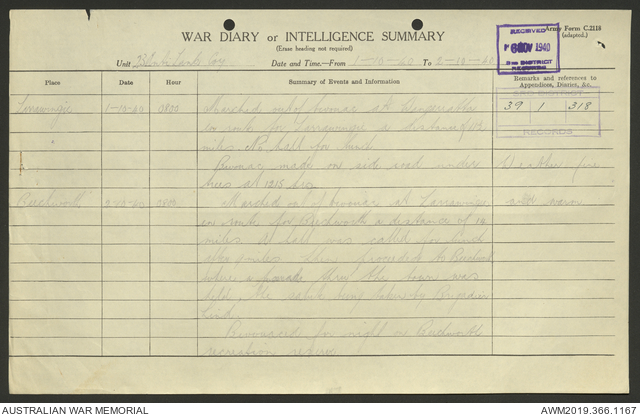 WAR DIARY or INTELLIGENCE SUMMARY
(Erase heading not required)
Army Form C.2118
(adapted.)
RECEIVED
NOV 1940
3RD DISTRICT
RECORDS
Unit Coy Date and Time.—From 1-10-40 To 2-10-40
Place Date Hour Summary of Events and Information Remarks and references to
Appendices, Diaries, &c.
39 1 318
RECORDS
1-10-40 0800 Marched out of bivouac at
en route for a distance of
miles. No halt for lunch
Bivouac made on side road under Weather fine
trees at 1215 hrs and warm
Beechworth 2-10-40 0800 Marched out of bivouac at
en route for Beechworth a distance of 14
miles. A halt was called for lunch
miles then proceeded to Beechworth
where a parade thru the town was
held, the salute being taken by Brigadier
Bivouaced for night on Beechworth
recreation reserve
AUSTRALIAN WAR MEMORIAL
AWM2019.366.1167